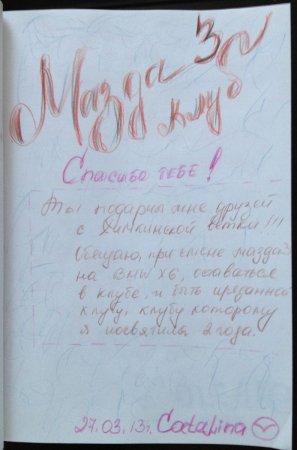 Мазда 3 клуб
Спасибо тебе!
Ты подарил мне друзей
с Химкинской ветки!!!
Обещаю, при смене мазда3
на BMW X6, оставаться
в клубе, и быть преданной
клубу, клубу которому
я посвятила 2 года.
27.03.13г. Catalina